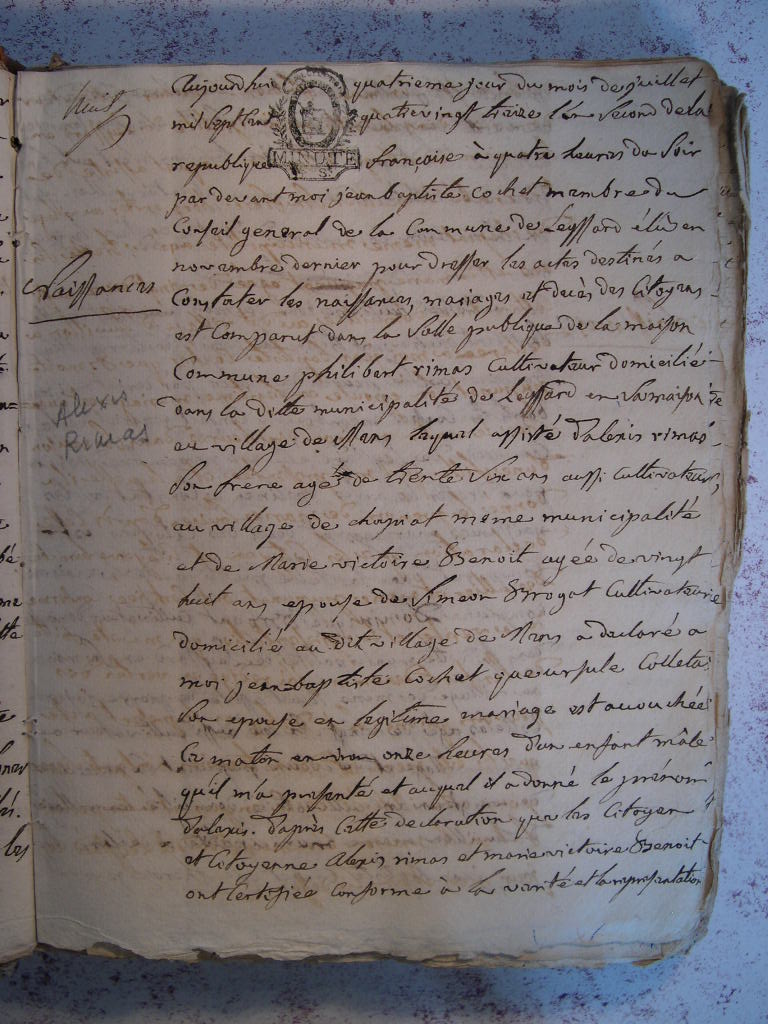 huit
Aujourdhui quatrieme jour du mois de juillet
mil Sept Cent quatrevingt treize l'an Second de la
MINUTE
republique françoise à quatre heures du Soir
par devant moi jean baptiste Cochet membre du
Conseil general de la Commune de Leyssard élû en
novembre dernier pour dresser les actes destinés a
Naissances
Constater les naissances, mariages et decès des Citoyens
est Comparut dans la Salle publique de la maison
Commune philibert rimas Cultivateur domicilié
Alexis
Rimas
dans la ditte municipalité de Leyssard en Sa maison
au village de Mens lequel assisté d'alexis rimas
Son frere agé de trente Six ans aussi Cultivateur,
au village de chopiat meme municipalité
et de Marie victoire Benoit agée de vingt
huit ans epouse de Simeon Brogat Cultivateur
domicilié au dit village de Mens a declaré a
moi jean baptiste Cochet que ursule Colleta
Son epouse en legitime mariage est accouchée
Ce matin environ onze heures d'un enfant mâle
qu'il m'a presenté et auquel il a donné le prénom
d'alexis. d'après Cette declaration que les Citoyen
et Citoyenne Alexis rimas et marie victoire Benoit
ont Certifiée Conforme à la verité et la representation